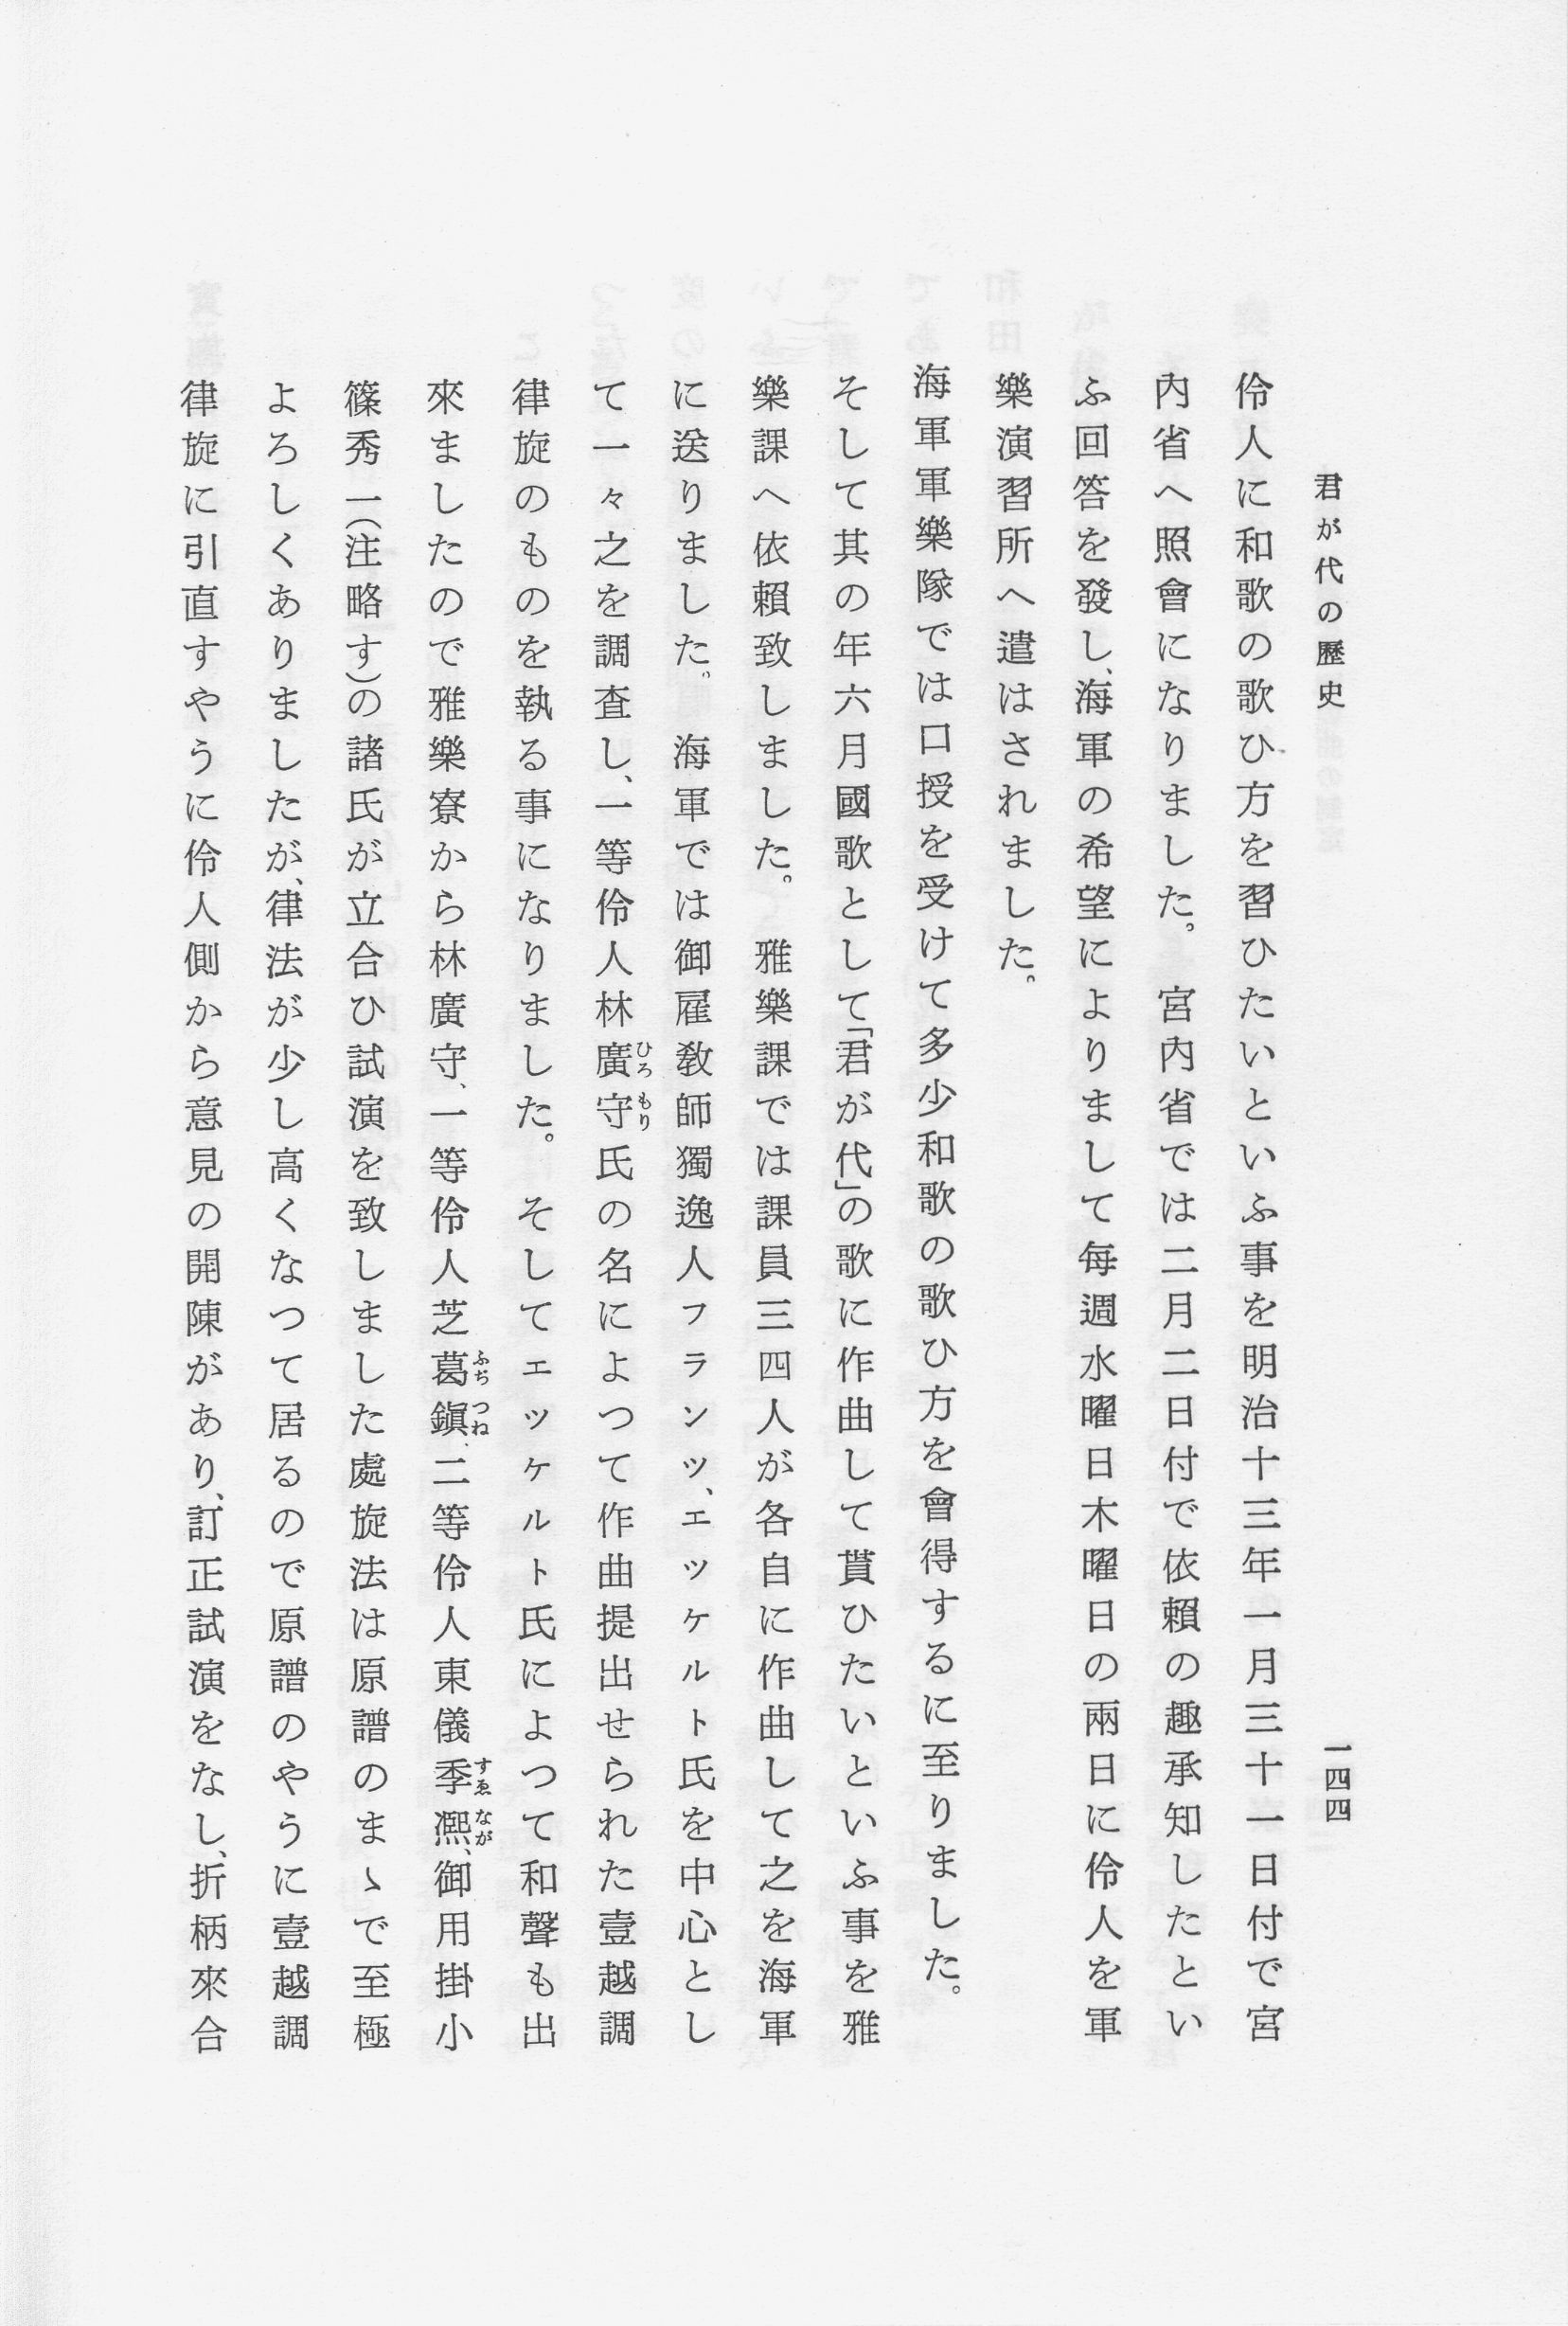 君が代の歷史
一四四
伶人に和歌の歌ひ方を習ひたいといふ事を明治十三年一月三十一日付で宮
內省へ照會になりました。　宮內省では二月二日付で依賴の趣承知したとい
ふ回答を發し、海軍の希望によりまして每週水曜日木曜日の兩日に伶人を軍
樂演習所へ遣はされました。
海軍軍樂隊では口授を受けて多少和歌の歌ひ方を會得するに至りました。
そして其の年六月國歌として「君が代」の歌に作曲して貰ひたいといふ事を雅
樂課へ依賴致しました。　雅樂課では課員三四人が各自に作曲して之を海軍
に送りました。　海軍では御雇敎師獨逸人フランツ、エツケルト氏を中心とし
て一々之を調查し、一等伶人林廣守氏の名によつて作曲提出せられた壹越調
ひろもり
律旋のものを執る事になりました。　そしてエツケルト氏によつて和聲も出
來ましたので雅樂寮から林廣守、一等伶人芝葛鎭、二等伶人東儀季凞、御用掛小
ふぢつね
すゑなが
篠秀一(注略す)の諸氏が立合ひ試演を致しました處旋法は原譜のまゝで至極
よろしくありましたが、律法が少し高くなつて居るので原譜のやうに壹越調
律旋に引直すやうに伶人側から意見の開陳があり、訂正試演をなし、折柄來合